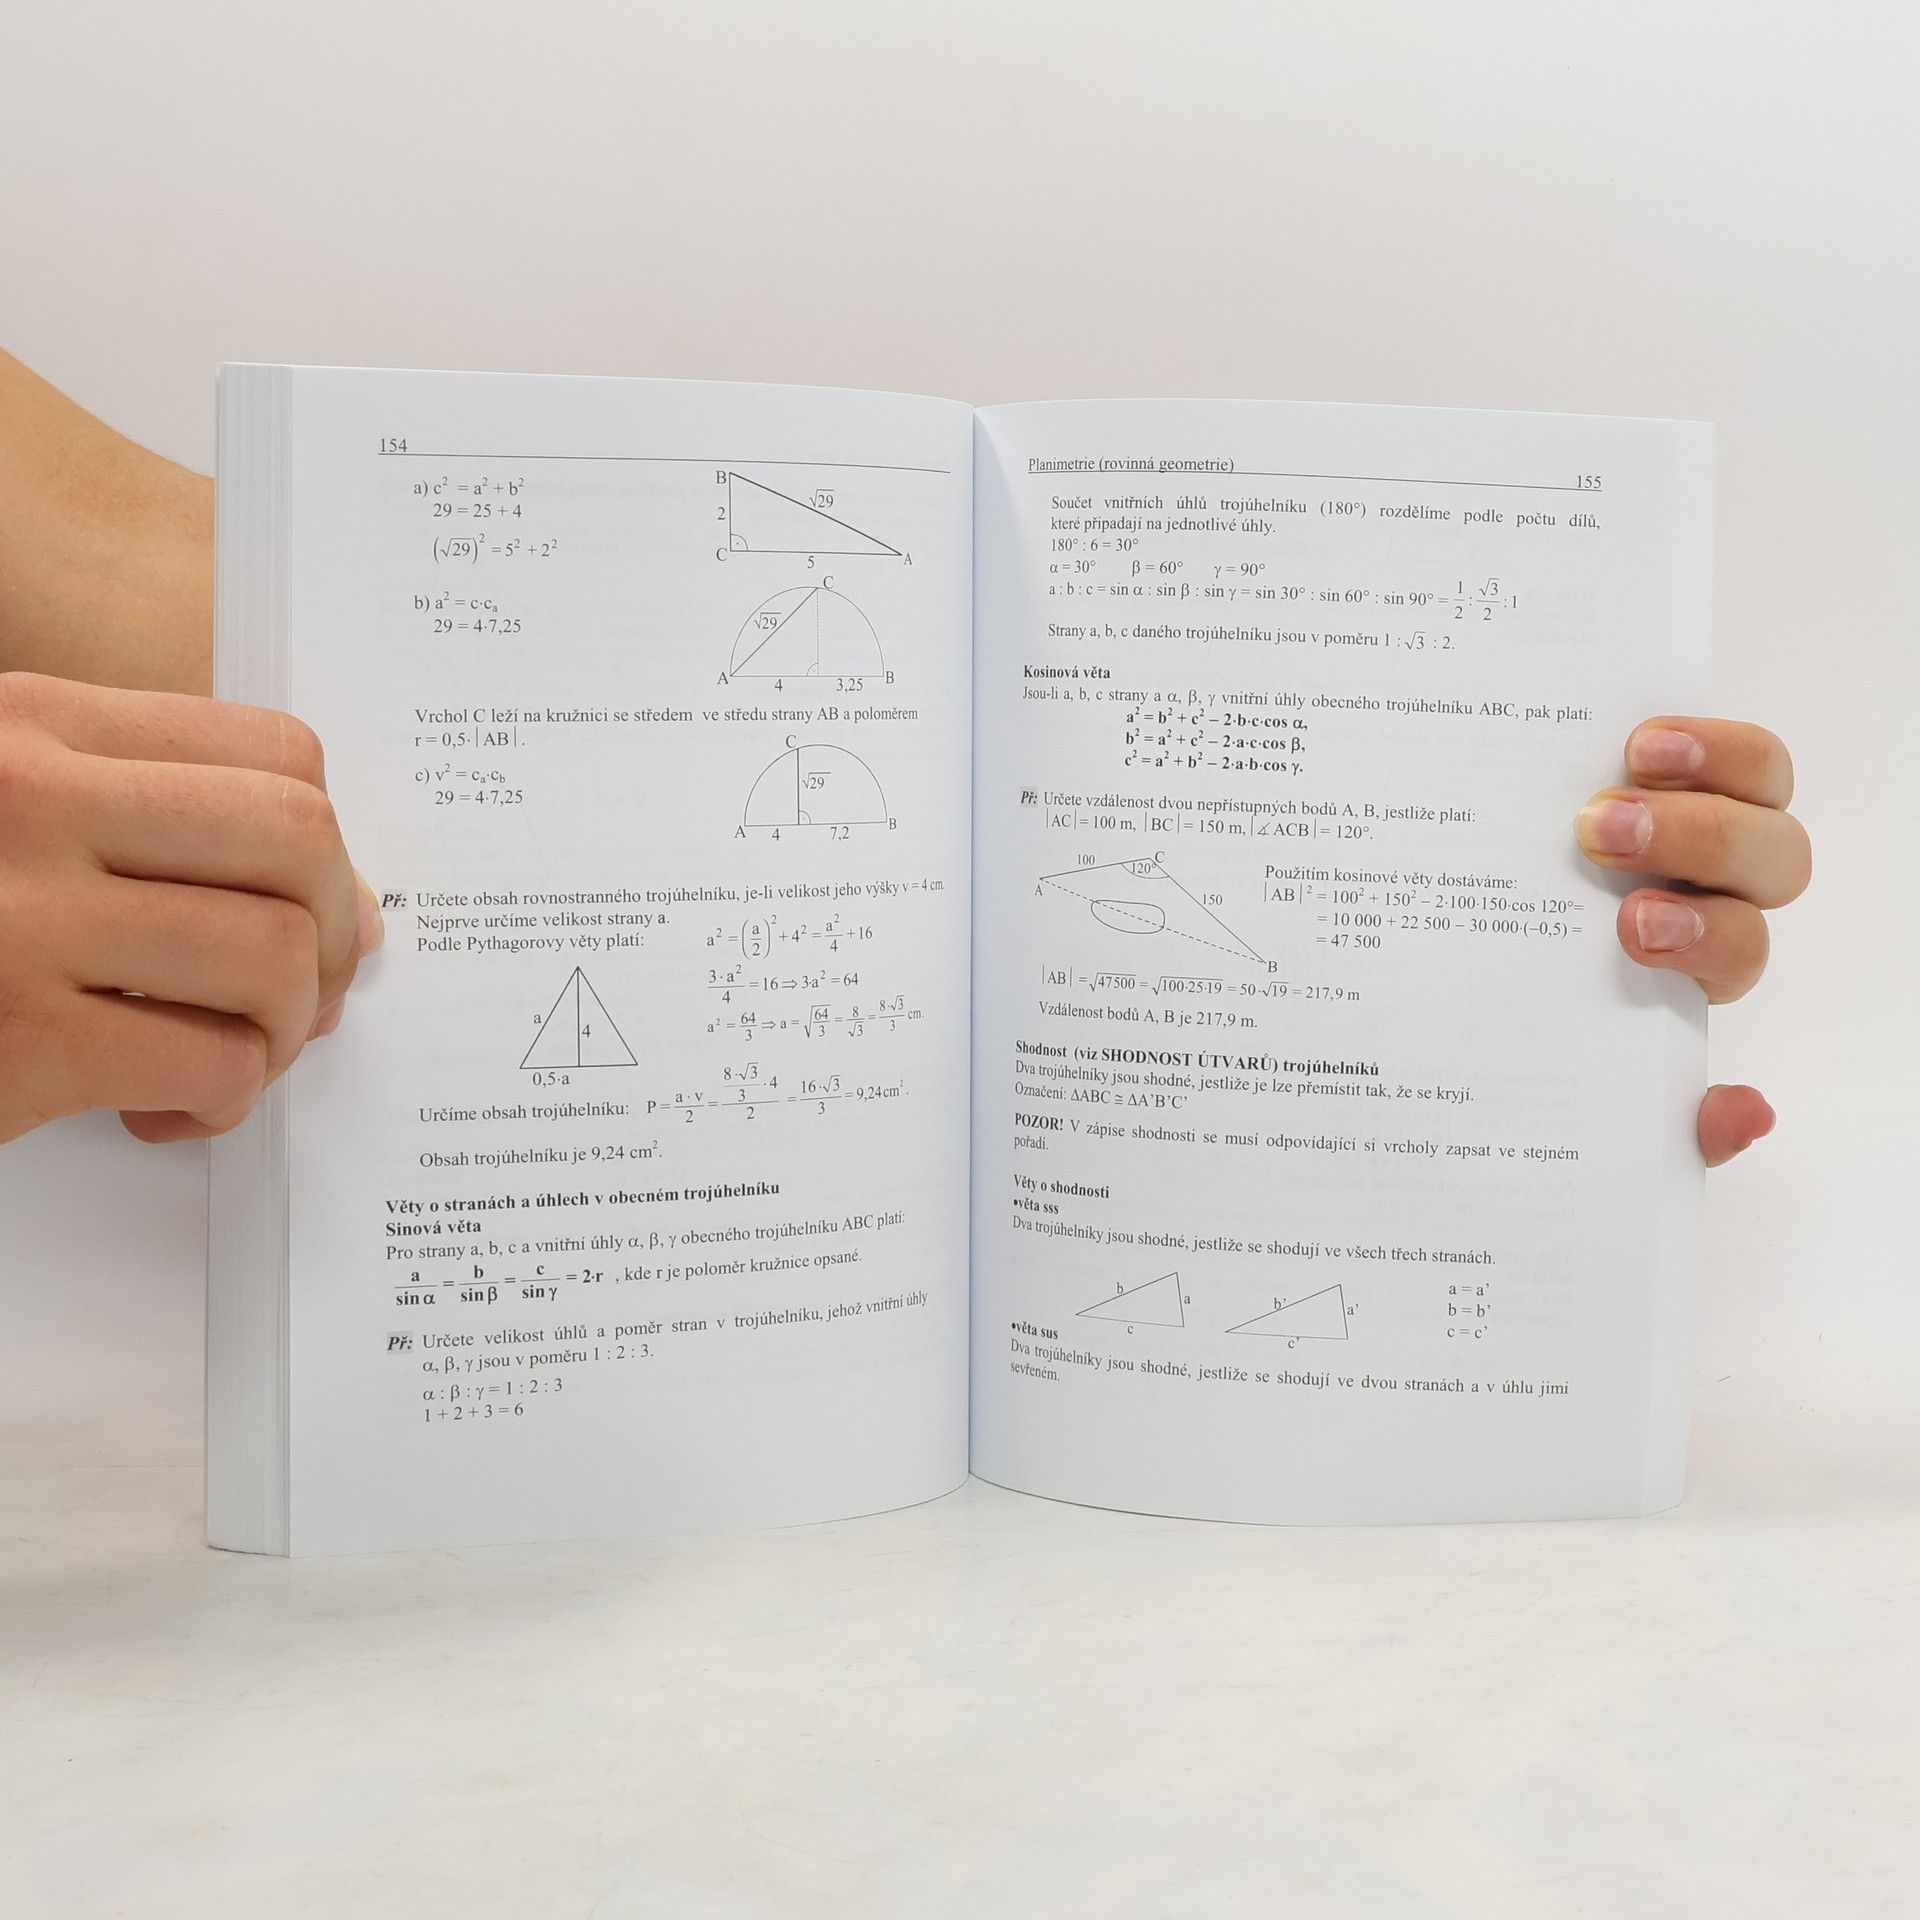 154
a) c² = a² + b²
29 = 25 + 4
(√29)² = 5² + 2²
B
√29
2
C
5
A
b) a² = c·cₐ
29 = 4·7,25
C
√29
A
4
3,25
B
Vrchol C leží na kružnici se středem ve středu strany AB a poloměrem
r = 0,5·|AB|.
c) v² = cₐ·c_b
29 = 4·7,25
C
√29
A
4
7,2
B
Př: Určete obsah rovnostranného trojúhelníku, je-li velikost jeho výšky v = 4 cm.
Nejprve určíme velikost strany a.
Podle Pythagorovy věty platí: a² = (a/2)² + 4² = a²/4 + 16
3·a²/4 = 16 ⇒ 3·a² = 64
a² = 64/3 ⇒ a = √(64/3) = 8/√3 = 8·√3/3 cm.
a
4
0,5·a
Určíme obsah trojúhelníku: P = a·v/2 = (8·√3/3 · 4)/2 = 16·√3/3 = 9,24 cm².
Obsah trojúhelníku je 9,24 cm².
Věty o stranách a úhlech v obecném trojúhelníku
Sinová věta
Pro strany a, b, c a vnitřní úhly α, β, γ obecného trojúhelníku ABC platí:
a/sin α = b/sin β = c/sin γ = 2·r , kde r je poloměr kružnice opsané.
Př: Určete velikost úhlů a poměr stran v trojúhelníku, jehož vnitřní úhly
α, β, γ jsou v poměru 1 : 2 : 3.
α : β : γ = 1 : 2 : 3
1 + 2 + 3 = 6
Planimetrie (rovinná geometrie)
155
Součet vnitřních úhlů trojúhelníku (180°) rozdělíme podle počtu dílů,
které připadají na jednotlivé úhly.
180° : 6 = 30°
α = 30° β = 60° γ = 90°
a : b : c = sin α : sin β : sin γ = sin 30° : sin 60° : sin 90° = 1/2 : √3/2 : 1
Strany a, b, c daného trojúhelníku jsou v poměru 1 : √3 : 2.
Kosinová věta
Jsou-li a, b, c strany a α, β, γ vnitřní úhly obecného trojúhelníku ABC, pak platí:
a² = b² + c² – 2·b·c·cos α,
b² = a² + c² – 2·a·c·cos β,
c² = a² + b² – 2·a·b·cos γ.
Př: Určete vzdálenost dvou nepřístupných bodů A, B, jestliže platí:
|AC| = 100 m, |BC| = 150 m, |∡ ACB| = 120°.
100
C
120°
A
150
B
Použitím kosinové věty dostáváme:
|AB|² = 100² + 150² – 2·100·150·cos 120°=
= 10 000 + 22 500 – 30 000·(–0,5) =
= 47 500
|AB| = √47500 = √100·25·19 = 50·√19 = 217,9 m
Vzdálenost bodů A, B je 217,9 m.
Shodnost (viz SHODNOST ÚTVARŮ) trojúhelníků
Dva trojúhelníky jsou shodné, jestliže je lze přemístit tak, že se kryjí.
Označení: ΔABC ≅ ΔA’B’C’
POZOR! V zápise shodnosti se musí odpovídající si vrcholy zapsat ve stejném
pořadí.
Věty o shodnosti
•věta sss
Dva trojúhelníky jsou shodné, jestliže se shodují ve všech třech stranách.
b
a
c
b’
a’
c’
a = a’
b = b’
c = c’
•věta sus
Dva trojúhelníky jsou shodné, jestliže se shodují ve dvou stranách a v úhlu jimi
sevřeném.